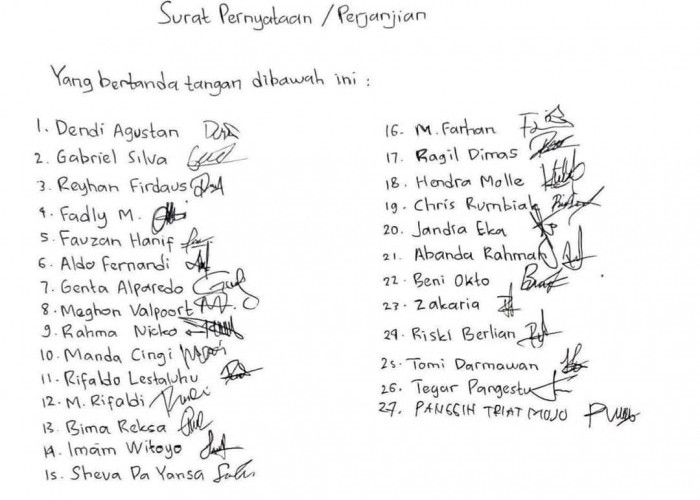 Surat Pernyataan / Perjanjian
Yang bertanda tangan dibawah ini :
1. Dendi Agustan
2. Gabriel Silva
3. Reyhan Firdaus
4. Fadly M.
5. Fauzan Hanif
6. Aldo Fernandi
7. Genta Alparedo
8. Meghon Valpoort
9. Rahma Nicko
10. Manda Cingi
11. Rifaldo Lestaluhu
12. M. Rifaldi
13. Bima Reksa
14. Imam Witoyo
15. Sheva Da Yansa
16. M. Farhan
17. Ragil Dimas
18. Hendra Molle
19. Chris Rumbiak
20. Jandia Eka
21. Abanda Rahman
22. Beni Okto
23. Zakaria
24. Riski Berlian
25. Tomi Darmawan
26. Tegar Pangestu
27. PANGGIH TRIAT MOJO